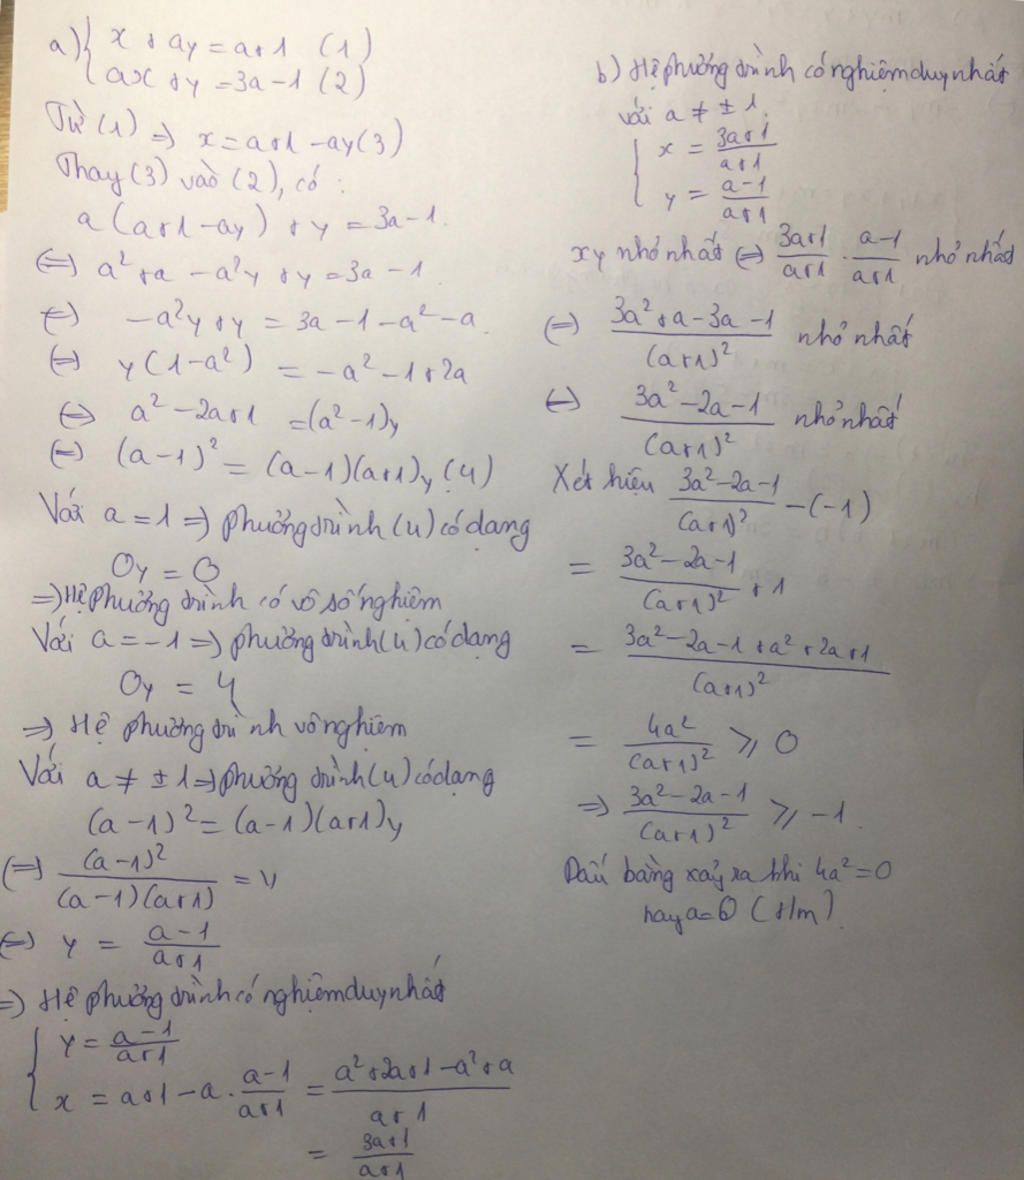 a) { x + ay = a+1 (1)
ax + y = 3a-1 (2)
Từ (1) => x = a+1 - ay (3)
Thay (3) vào (2), có:
a(a+1-ay) + y = 3a-1.
<=> a² + a - a²y + y = 3a - 1
<=> -a²y + y = 3a - 1 - a² - a.
<=> y(1-a²) = -a² - 1 + 2a
<=> a² - 2a + 1 = (a²-1)y
<=> (a-1)² = (a-1)(a+1)y (4)
Với a = 1 => phương trình (4) có dạng
0y = 0
=> Hệ phương trình có vô số nghiệm
Với a = -1 => phương trình (4) có dạng
0y = 4
=> Hệ phương trình vô nghiệm
Với a ≠ ±1 => phương trình (4) có dạng
(a-1)² = (a-1)(a+1)y
<=> (a-1)²/((a-1)(a+1)) = y
<=> y = (a-1)/(a+1)
=> Hệ phương trình có nghiệm duy nhất
{ y = (a-1)/(a+1)
x = a+1 - a · (a-1)/(a+1) = (a²+2a+1-a²+a)/(a+1)
= (3a+1)/(a+1)
b) Hệ phương trình có nghiệm duy nhất
với a ≠ ±1.
{ x = (3a+1)/(a+1)
y = (a-1)/(a+1)
xy nhỏ nhất <=> (3a+1)/(a+1) · (a-1)/(a+1) nhỏ nhất
<=> (3a²+a-3a-1)/(a+1)² nhỏ nhất
<=> (3a²-2a-1)/(a+1)² nhỏ nhất
Xét hiệu (3a²-2a-1)/(a+1)² - (-1)
= (3a²-2a-1)/(a+1)² + 1
= (3a²-2a-1+a²+2a+1)/(a+1)²
= 4a²/(a+1)² ≥ 0
=> (3a²-2a-1)/(a+1)² ≥ -1.
Dấu bằng xảy ra khi 4a² = 0
hay a = 0 (t/m).